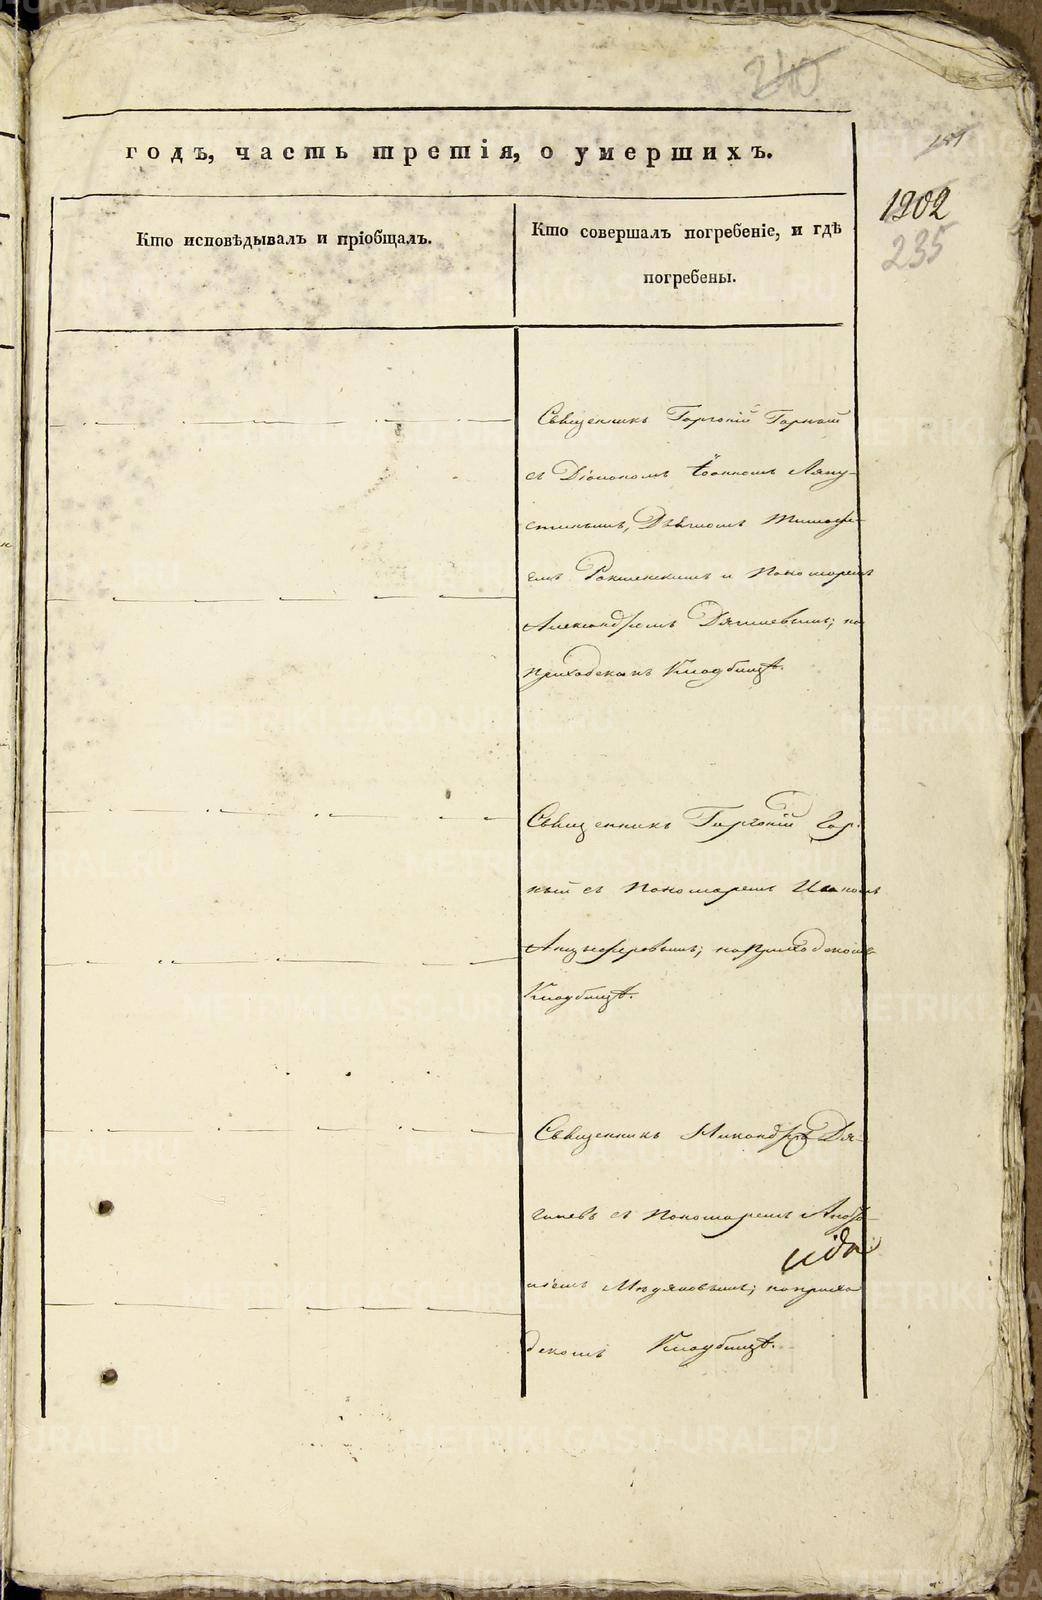 240
годъ, часть третія, о умершихъ.
1202
235
Кто исповѣдывалъ и пріобщалъ.
Кто совершалъ погребеніе, и гдѣ
погребены.
Священникъ Горгоній Горный
съ Діакономъ Іоанномъ Ляпу-
стинымъ, Дьячкомъ Тимофе-
емъ и Пономаремъ
Александромъ Дягилевымъ; на
приходскомъ Кладбищѣ.
Священникъ Горгоній Гор-
ный съ Пономаремъ Иваномъ
Анцыферовымъ; на приходскомъ
Кладбищѣ.
Священникъ Никандръ Дя-
гилевъ съ Пономаремъ
на прихо
дскомъ Кладбищѣ.
METRIKI.GASO-URAL.RU